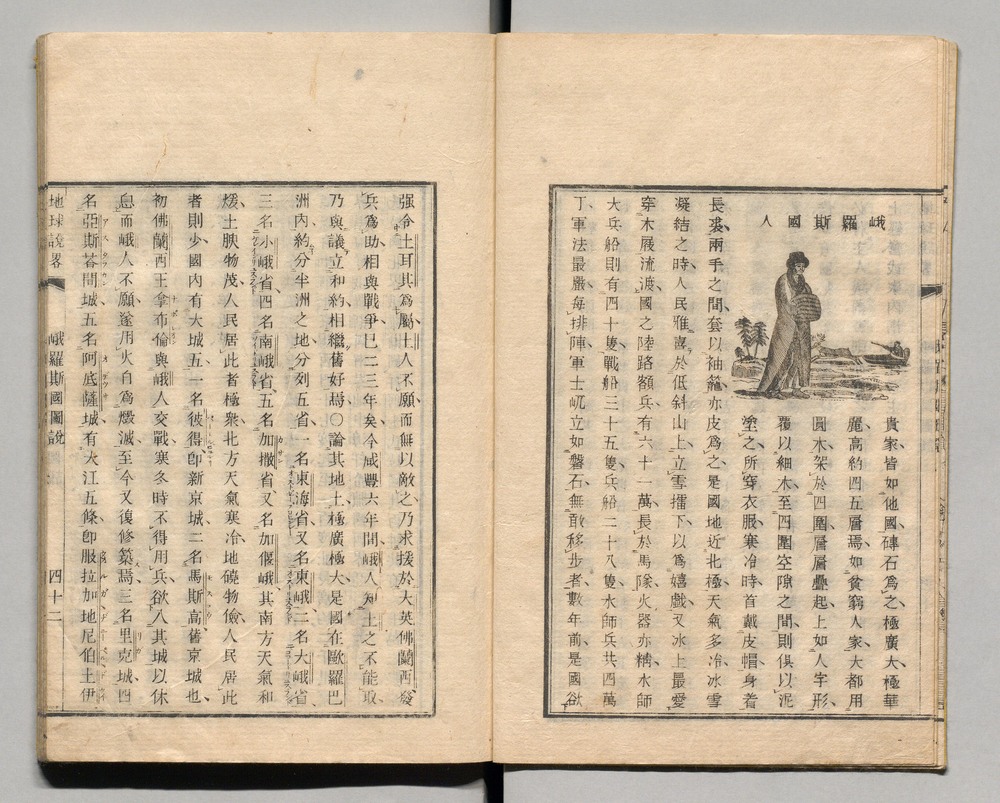 峨羅斯國人
貴家皆如他國磚石為之極廣大極華
麗高約四五層焉如貧窮人家大都用
圓木架於四圍層層疊起上如人字形
覆以細木至四圍空隙之間則俱以泥
塗之所穿衣服寒冷時首戴皮帽身着
長裘兩手之間套以袖籠亦皮為之是國地近北極天氣多冷冰雪
凝結之時人民雅喜於低斜山上立雪擂下以為嬉戲又冰上最愛
穿木屐流渡國之陸路額兵有六十一萬長於馬隊火器亦精水師
大兵船則有四十隻戰船三十五隻兵船二十八隻水師兵共四萬
丁軍法最嚴每排陣軍士屼立如磐石無敢移步者數年前是國欲
强令土耳其為屬土人不願而無以敵之乃求援於大英佛蘭西發
兵為助相與戰爭已二三年矣今咸豐六年間峨人知土之不能取
乃與議立和約相繼舊好焉○論其地土極廣極大是國在歐羅巴
洲內約分半洲之地分列五省一名東海省又名東峨二名大峨省
三名小峨省四名南峨省五名加撒省又名加偃峨其南方天氣和
煖土腴物茂人民居此者極衆北方天氣寒冷地磽物儉人民居此
者則少國內有大城五一名彼得卽新京城二名馬斯高舊京城也
初佛蘭西王拿布倫與峨人交戰寒冬時不得用兵欲入其城以休
息而峨人不願遂用火自為燬滅至今又復修築焉三名里克城四
名亞斯荅間城五名阿底薩城有大江五條卽服拉加地尼伯土伊
地球說畧
峨羅斯國圖說
四十二